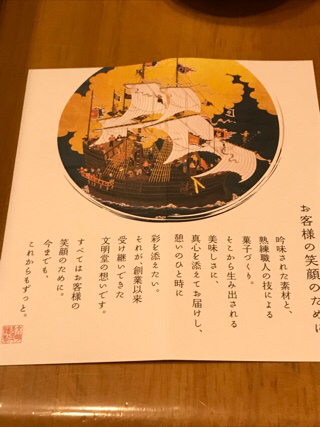 お客様の笑顔のために
吟味された素材と、
熟練職人の技による
菓子づくり。
そこから生み出される
美味しさに、
真心を添えてお届けし、
憩いのひと時に
彩を添えたい。
それが、創業以来
受け継いできた
文明堂の想いです。
すべてはお客様の
笑顔のために。
今までも、
これからもずっと。